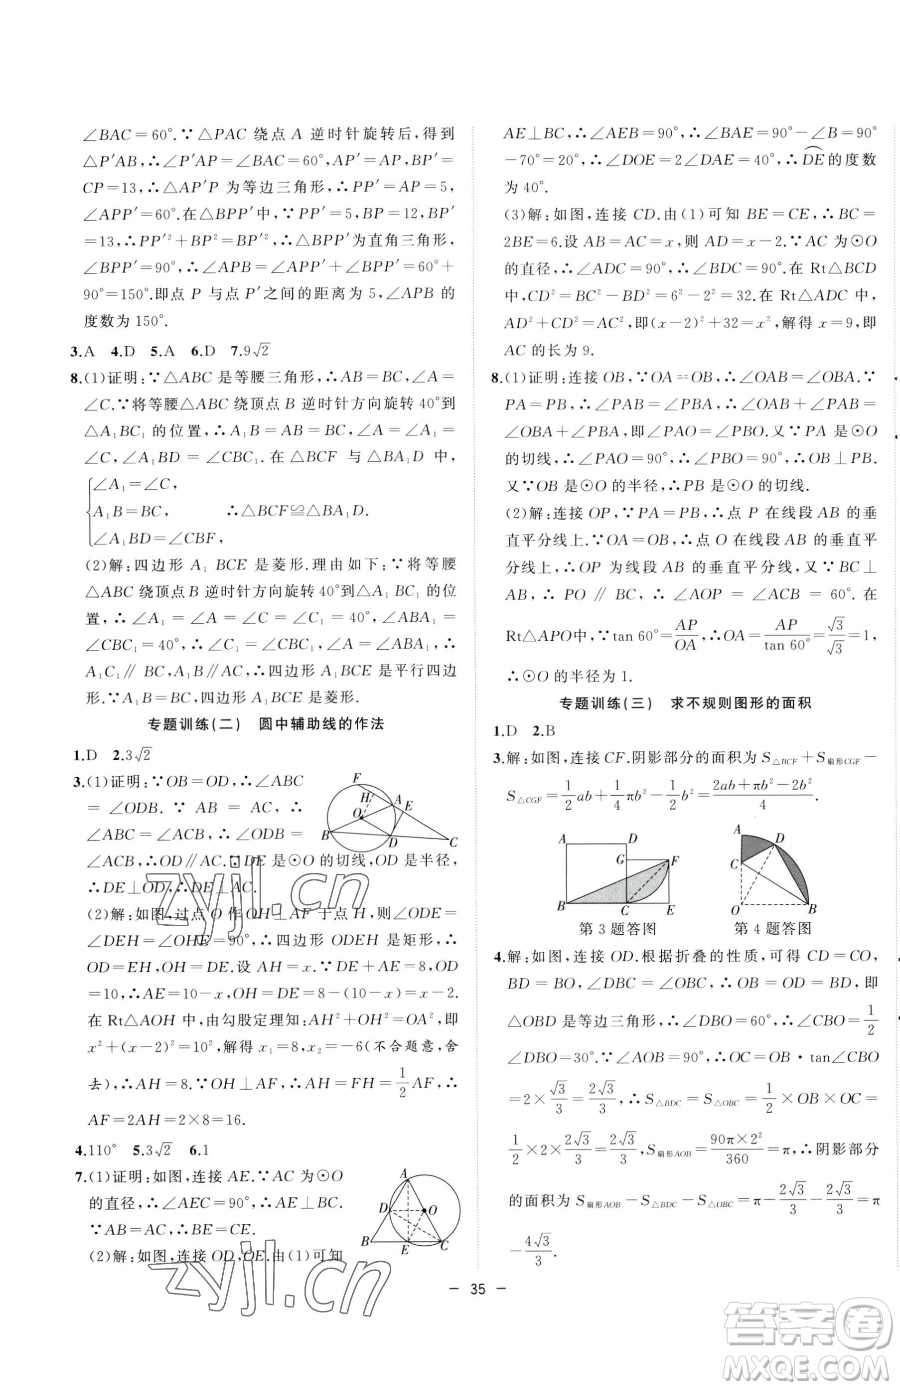 ∠BAC=60°.∵△PAC 绕点 A 逆时针旋转后,得到
△P′AB,∴∠P′AP=∠BAC=60°,AP′=AP,BP′=
CP=13,∴△AP′P 为等边三角形,∴PP′=AP=5,
∠APP′=60°.在△BPP′中,∵PP′=5,BP=12,BP′
=13,∴PP′²+BP²=BP′²,∴△BPP′为直角三角形,
∠BPP′=90°,∴∠APB=∠APP′+∠BPP′=60°+
90°=150°.即点 P 与点 P′之间的距离为 5,∠APB 的
度数为 150°.
3.A 4.D 5.A 6.D 7.9√2
8.(1)证明:∵△ABC 是等腰三角形,∴AB=BC,∠A=
∠C.∵将等腰△ABC 绕顶点 B 逆时针方向旋转 40°到
△A₁BC₁ 的位置,∴A₁B=AB=BC,∠A₁=∠A=
∠C,∠A₁BD=∠CBC₁.在△BCF 与△BA₁D 中,
∠A₁=∠C,
A₁B=BC, ∴△BCF≌△BA₁D.
∠A₁BD=∠CBF,
(2)解:四边形 A₁BCE 是菱形.理由如下:∵将等腰
△ABC 绕顶点 B 逆时针方向旋转 40°到△A₁BC₁ 的位
置,∴∠A₁=∠A=∠C₁=∠C=40°,∠ABA₁=
∠CBC₁=40°,∴∠C₁=∠CBC₁,∠A=∠ABA₁,∴
A₁C₁∥BC,A₁B∥AC,∴四边形 A₁BCE 是平行四边
形.∵A₁B=BC,∴四边形 A₁BCE 是菱形.
专题训练(二) 圆中辅助线的作法
1.D 2.3√2
3.(1)证明:∵OB=OD,∴∠ABC
=∠ODB.∵AB=AC,∴
∠ABC=∠ACB,∴∠ODB=
∠ACB,∴OD∥AC.∵DE 是⊙O 的切线,OD 是半径,
∴DE⊥OD,∴DE⊥AC.
(2)解:如图,过点 O 作 OH⊥AF 于点 H,则∠ODE=
∠DEH=∠OHE=90°,∴四边形 ODEH 是矩形,∴
OD=EH,OH=DE.设 AH=x.∵DE+AE=8,
OD=10,∴AE=10-x,OH=DE=8-(10-x)=x-2.
在 Rt△AOH 中,由勾股定理知:AH²+OH²=OA²,即
x²+(x-2)²=10²,解得 x₁=8,x₂=-6(不合题意,舍
去),∴AH=8.∵OH⊥AF,∴AH=FH=1/2AF,∴
AF=2AH=2×8=16.
4.110° 5.3√2 6.1
7.(1)证明:如图,连接 AE.∵AC 为⊙O
的直径,∴∠AEC=90°,∴AE⊥BC.
∵AB=AC,∴BE=CE.
(2)解:如图,连接 OD,OE.由(1)可知
F
H
A
E
O
B
D
C
A
D
O
B
E
C
AE⊥BC,∴∠AEB=90°,∴∠BAE=90°-∠B=90°
-70°=20°,∴∠DOE=2∠DAE=40°,∴DE的度数
为 40°.
(3)解:如图,连接 CD.由(1)可知 BE=CE,∴BC=
2BE=6.设 AB=AC=x,则 AD=x-2.∵AC 为⊙O
的直径,∴∠ADC=∠BDC=90°.在 Rt△BCD
中,CD²=BC²-BD²=6²-2²=32.在 Rt△ADC 中,
AD²+CD²=AC²,即(x-2)²+32=x²,解得 x=9,即
AC 的长为 9.
8.(1)证明:连接 OB,∵OA=OB,∴∠OAB=∠OBA.∵
PA=PB,∴∠PAB=∠PBA,∴∠OAB+∠PAB=
∠OBA+∠PBA,即∠PAO=∠PBO.又∵PA 是⊙O
的切线,∴∠PAO=90°,∴∠PBO=90°,∴OB⊥PB.
又∵OB 是⊙O 的半径,∴PB 是⊙O 的切线.
(2)解:连接 OP,∵PA=PB,∴点 P 在线段 AB 的垂
直平分线上.∵OA=OB,∴点 O 在线段 AB 的垂直平
分线上,∴OP 为线段 AB 的垂直平分线.又∵BC⊥
AB,∴PO∥BC,∴∠AOP=∠ACB=60°.在
Rt△APO中,∵tan 60°=AP/OA,∴OA=AP/tan60°=√3/√3=1,
∴⊙O 的半径为 1.
专题训练(三) 求不规则图形的面积
1.D 2.B
3.解:如图,连接 CF.阴影部分的面积为 S△BCF+S扇形CGF-
S△CGF=1/2ab+1/4πb²-1/2b²=(2ab+πb²-2b²)/4.
A
D
G
F
B
C
E
第 3 题答图
A
D
C
O
B
第 4 题答图
4.解:如图,连接 OD.根据折叠的性质,可得 CD=CO,
BD=BO,∠DBC=∠OBC,∴OB=OD=BD,即
△OBD 是等边三角形,∴∠DBO=60°,∴∠CBO=1/2
∠DBO=30°.∵∠AOB=90°,∴OC=OB·tan∠CBO
=2×√3/3=2√3/3,∴S△BDC=S△OBC=1/2×OB×OC=
1/2×2×2√3/3=2√3/3,S扇形AOB=90π×2²/360=π,∴阴影部分
的面积为 S扇形AOB-S△BDC-S△OBC=π-2√3/3-2√3/3=π
-4√3/3.
— 35 —
zyjl.cn
zyjl.cn
答案圈
MXQE.COM